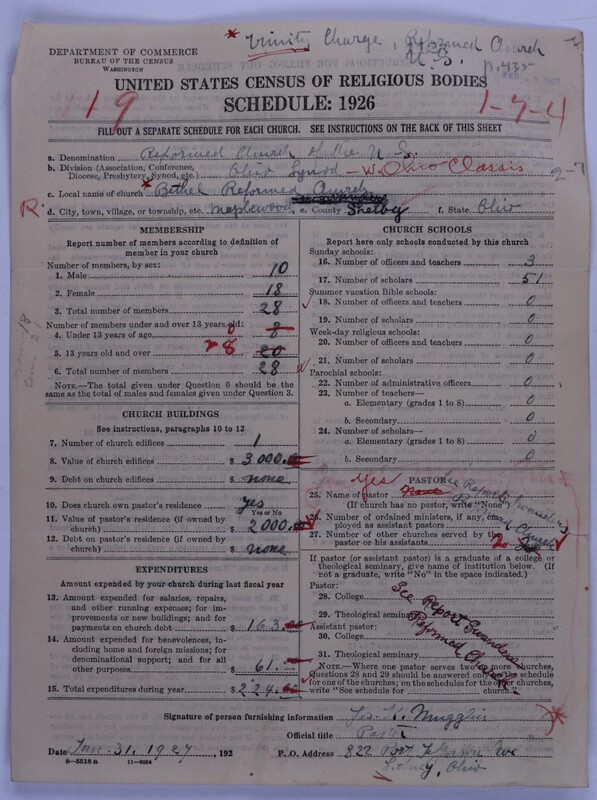 * Trinity Charge, Reformed Church
U.S. p. 435
DEPARTMENT OF COMMERCE
BUREAU OF THE CENSUS
WASHINGTON
UNITED STATES CENSUS OF RELIGIOUS BODIES
SCHEDULE: 1926
19
1-7-4
FILL OUT A SEPARATE SCHEDULE FOR EACH CHURCH. SEE INSTRUCTIONS ON THE BACK OF THIS SHEET
a. Denomination Reformed Church of the U. S.
b. Division (Association, Conference, Diocese, Presbytery, Synod, etc.) Ohio Synod - W. Ohio Classis
9-7
c. Local name of church * Bethel Reformed Church
R. d. City, town, village, or township, etc. Maplewood e. County Shelby f. State Ohio
MEMBERSHIP
Report number of members according to definition of
member in your church
Number of members, by sex:
1. Male 10
2. Female 18
3. Total number of members 28
Number of members under and over 13 years old:
4. Under 13 years of age 0 8
5. 13 years old and over 28 20
6. Total number of members 28
NOTE.—The total given under Question 6 should be the
same as the total of males and females given under Question 3.
CHURCH BUILDINGS
See instructions, paragraphs 10 to 12
7. Number of church edifices 1
8. Value of church edifices $ 3000.
9. Debt on church edifices $ none
10. Does church own pastor's residence yes
Yes or No
11. Value of pastor's residence (if owned by
church) $ 2000.
12. Debt on pastor's residence (if owned by
church) $ none
EXPENDITURES
Amount expended by your church during last fiscal year
13. Amount expended for salaries, repairs,
and other running expenses; for im-
provements or new buildings; and for
payments on church debt $ 163.
14. Amount expended for benevolences,
including home and foreign missions; for
denominational support; and for all
other purposes $ 61.
15. Total expenditures during year $ 224.
CHURCH SCHOOLS
Report here only schools conducted by this church
Sunday schools:
16. Number of officers and teachers 3
17. Number of scholars 51
Summer vacation Bible schools:
18. Number of officers and teachers 0
19. Number of scholars 0
Week-day religious schools:
20. Number of officers and teachers 0
21. Number of scholars 0
Parochial schools:
22. Number of administrative officers 0
23. Number of teachers—
a. Elementary (grades 1 to 8) 0
b. Secondary 0
24. Number of scholars—
a. Elementary (grades 1 to 8) 0
b. Secondary 0
PASTOR
25. Name of pastor yes None See Report Swanders Reformed Church
(If church has no pastor, write "None")
26. Number of ordained ministers, if any, em-
ployed as assistant pastors
27. Number of other churches served by the
pastor or his assistants 2
If pastor (or assistant pastor) is a graduate of a college or
theological seminary, give name of institution below. (If
not a graduate, write "No" in the space indicated.)
Pastor:
28. College
29. Theological seminary
See Report Swanders
Reformed Church
Assistant pastor:
30. College
31. Theological seminary
NOTE.—Where one pastor serves two or more churches,
Questions 28 and 29 should be answered only on the schedule
for one of the churches; on the schedules for the other churches,
write "See schedule for church."
Signature of person furnishing information
Official title Pastor
Date Jan. 31. 1927, 192
P. O. Address 822 Ave
Sidney, Ohio
8—5518 a 11—9034